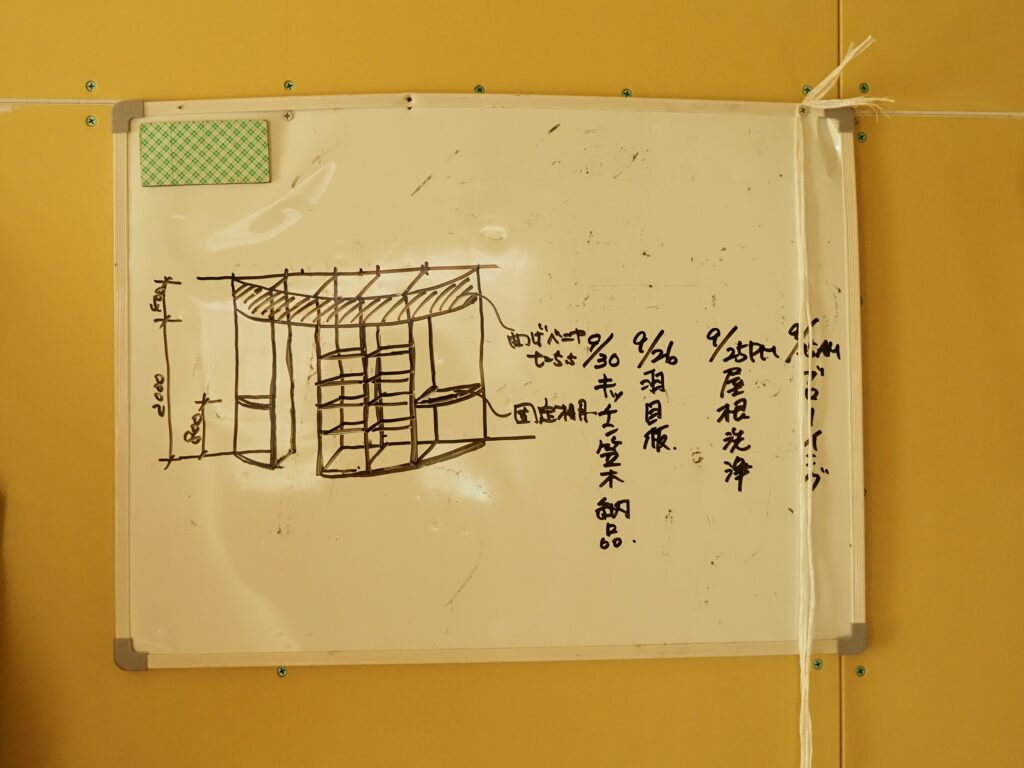 9/25PM
屋根洗浄
9/26
羽目板.
9/30
キッチン笠木 納品.
曲げベニヤ
t=5.5
固定棚
2000
800